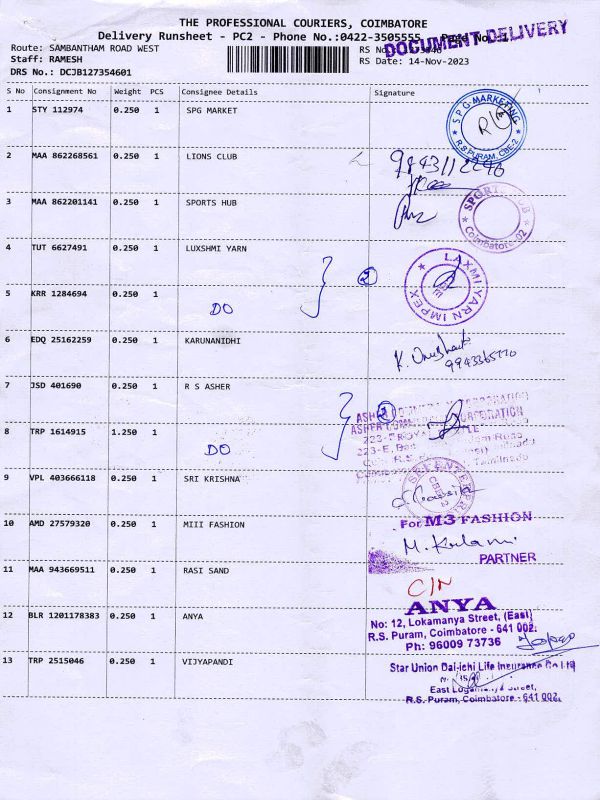 THE PROFESSIONAL COURIERS, COIMBATORE
Delivery Runsheet - PC2 - Phone No.:0422-3505555 Page No.
DOCUMENT DELIVERY
Route: SAMBANTHAM ROAD WEST RS No
Staff: RAMESH RS Date: 14-Nov-2023
DRS No.: DCJB127354601
S No Consignment No Weight PCS Consignee Details Signature
1 STY 112974 0.250 1 SPG MARKET
SPG MARKETING R.S. PURAM, CBE-2
2 MAA 862268561 0.250 1 LIONS CLUB
3 MAA 862201141 0.250 1 SPORTS HUB
Coimbatore 02
4 TUT 6627491 0.250 1 LUXSHMI YARN
LAXMI YARN IMPEX
2
5 KRR 1284694 0.250 1
DO
6 EDQ 25162259 0.250 1 KARUNANIDHI
7 JSD 401690 0.250 1 R S ASHER
2
8 TRP 1614915 1.250 1
DO
9 VPL 403666118 0.250 1 SRI KRISHNA
10 AMD 27579320 0.250 1 MIII FASHION
For M3 FASHION
PARTNER
11 MAA 943669511 0.250 1 RASI SAND
C/N
12 BLR 1201178383 0.250 1 ANYA
ANYA
No: 12, Lokamanya Street, (East)
R.S. Puram, Coimbatore - 641 002.
Ph: 96009 73736
13 TRP 2515046 0.250 1 VIJYAPANDI
Star Union Dai-ichi Life Insurance Co Ltd
R.S. Puram, Coimbatore - 641 002.